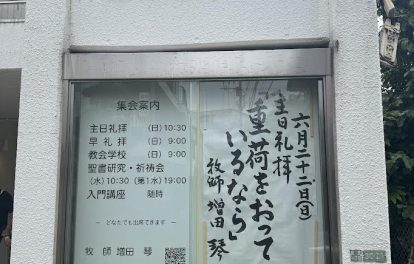 集会案内
主日礼拝 (日) 10:30
早 礼 拝 (日) 9:00
教会学校 (日) 9:00
聖書研究・祈祷会
(水) 10:30 (第1水) 19:00
入門講座 随時
― どなたでも出席できます ―
牧 師 増 田 琴
六月二十二日(日)
主日礼拝
「重荷をおって
いるなら」
牧師 増田 琴